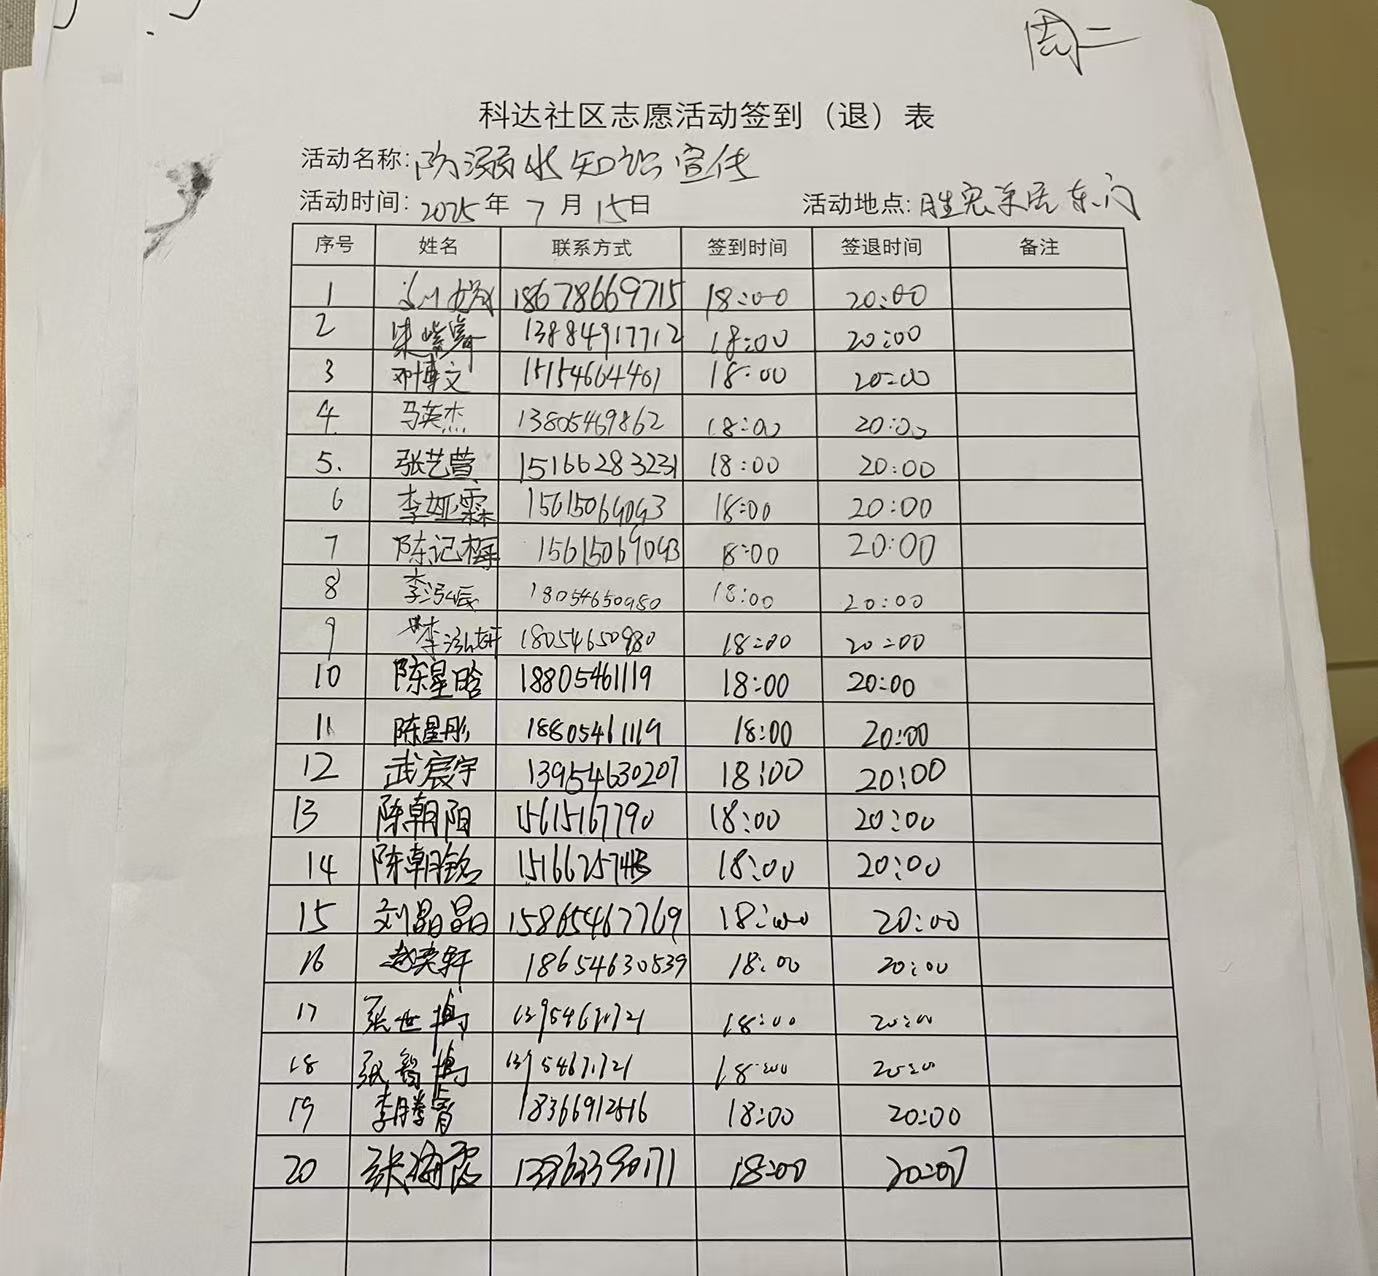 周二
科达社区志愿活动签到（退）表
活动名称: 防溺水知识宣传
活动时间: 2025年 7月 15日 活动地点: 胜宏 东门
序号 姓名 联系方式 签到时间 签退时间 备注
1 18678669715 18:00 20:00
2 13884917712 18:00 20:00
3 邓博文 15154664461 18:00 20:00
4 马英杰 13805469862 18:00 20:00
5. 张艺萱 15166283231 18:00 20:00
6 李娅霖 15615069093 18:00 20:00
7 陈记 15615069093 18:00 20:00
8 李泓辰 18054650980 18:00 20:00
9 李泓妍 18054650980 18:00 20:00
10 陈星晗 18805461119 18:00 20:00
11 陈星彤 18805461119 18:00 20:00
12 武宸宇 13954630207 18:00 20:00
13 陈朝阳 15615167790 18:00 20:00
14 陈朝铭 18:00 20:00
15 刘晶晶 15865467769 18:00 20:00
16 赵奕轩 18654630539 18:00 20:00
17 张世博 18:00 20:00
18 张智博 18:00 20:00
19 李腾霄 18366912516 18:00 20:00
20 张海霞 18:00 20:00